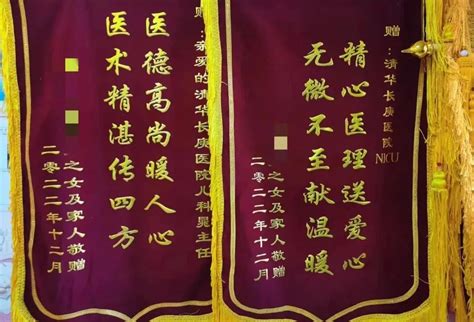 赠:清华长庚医院NICU
精心医理送爱心
无微不至献温暖
之女及家人敬赠
二〇二二年十二月
赠:亲爱的清华长庚医院儿科晁主任
医德高尚暖人心
医术精湛传四方
之女及家人敬赠
二〇二二年十二月